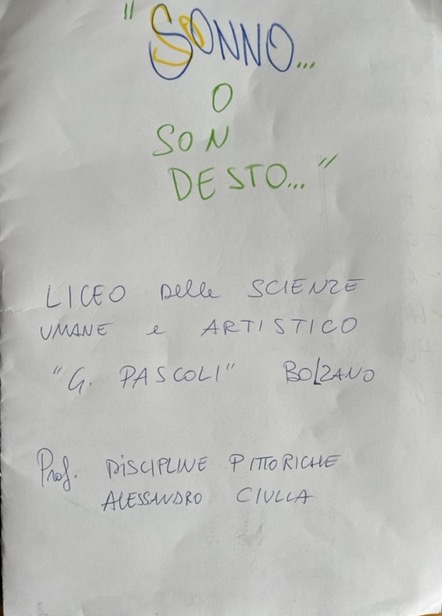 "SONNO...
O
SON
DESTO..."
LICEO delle SCIENZE
UMANE e ARTISTICO
"G. PASCOLI" BOLZANO
Prof. DISCIPLINE PITTORICHE
ALESSANDRO CIULLA